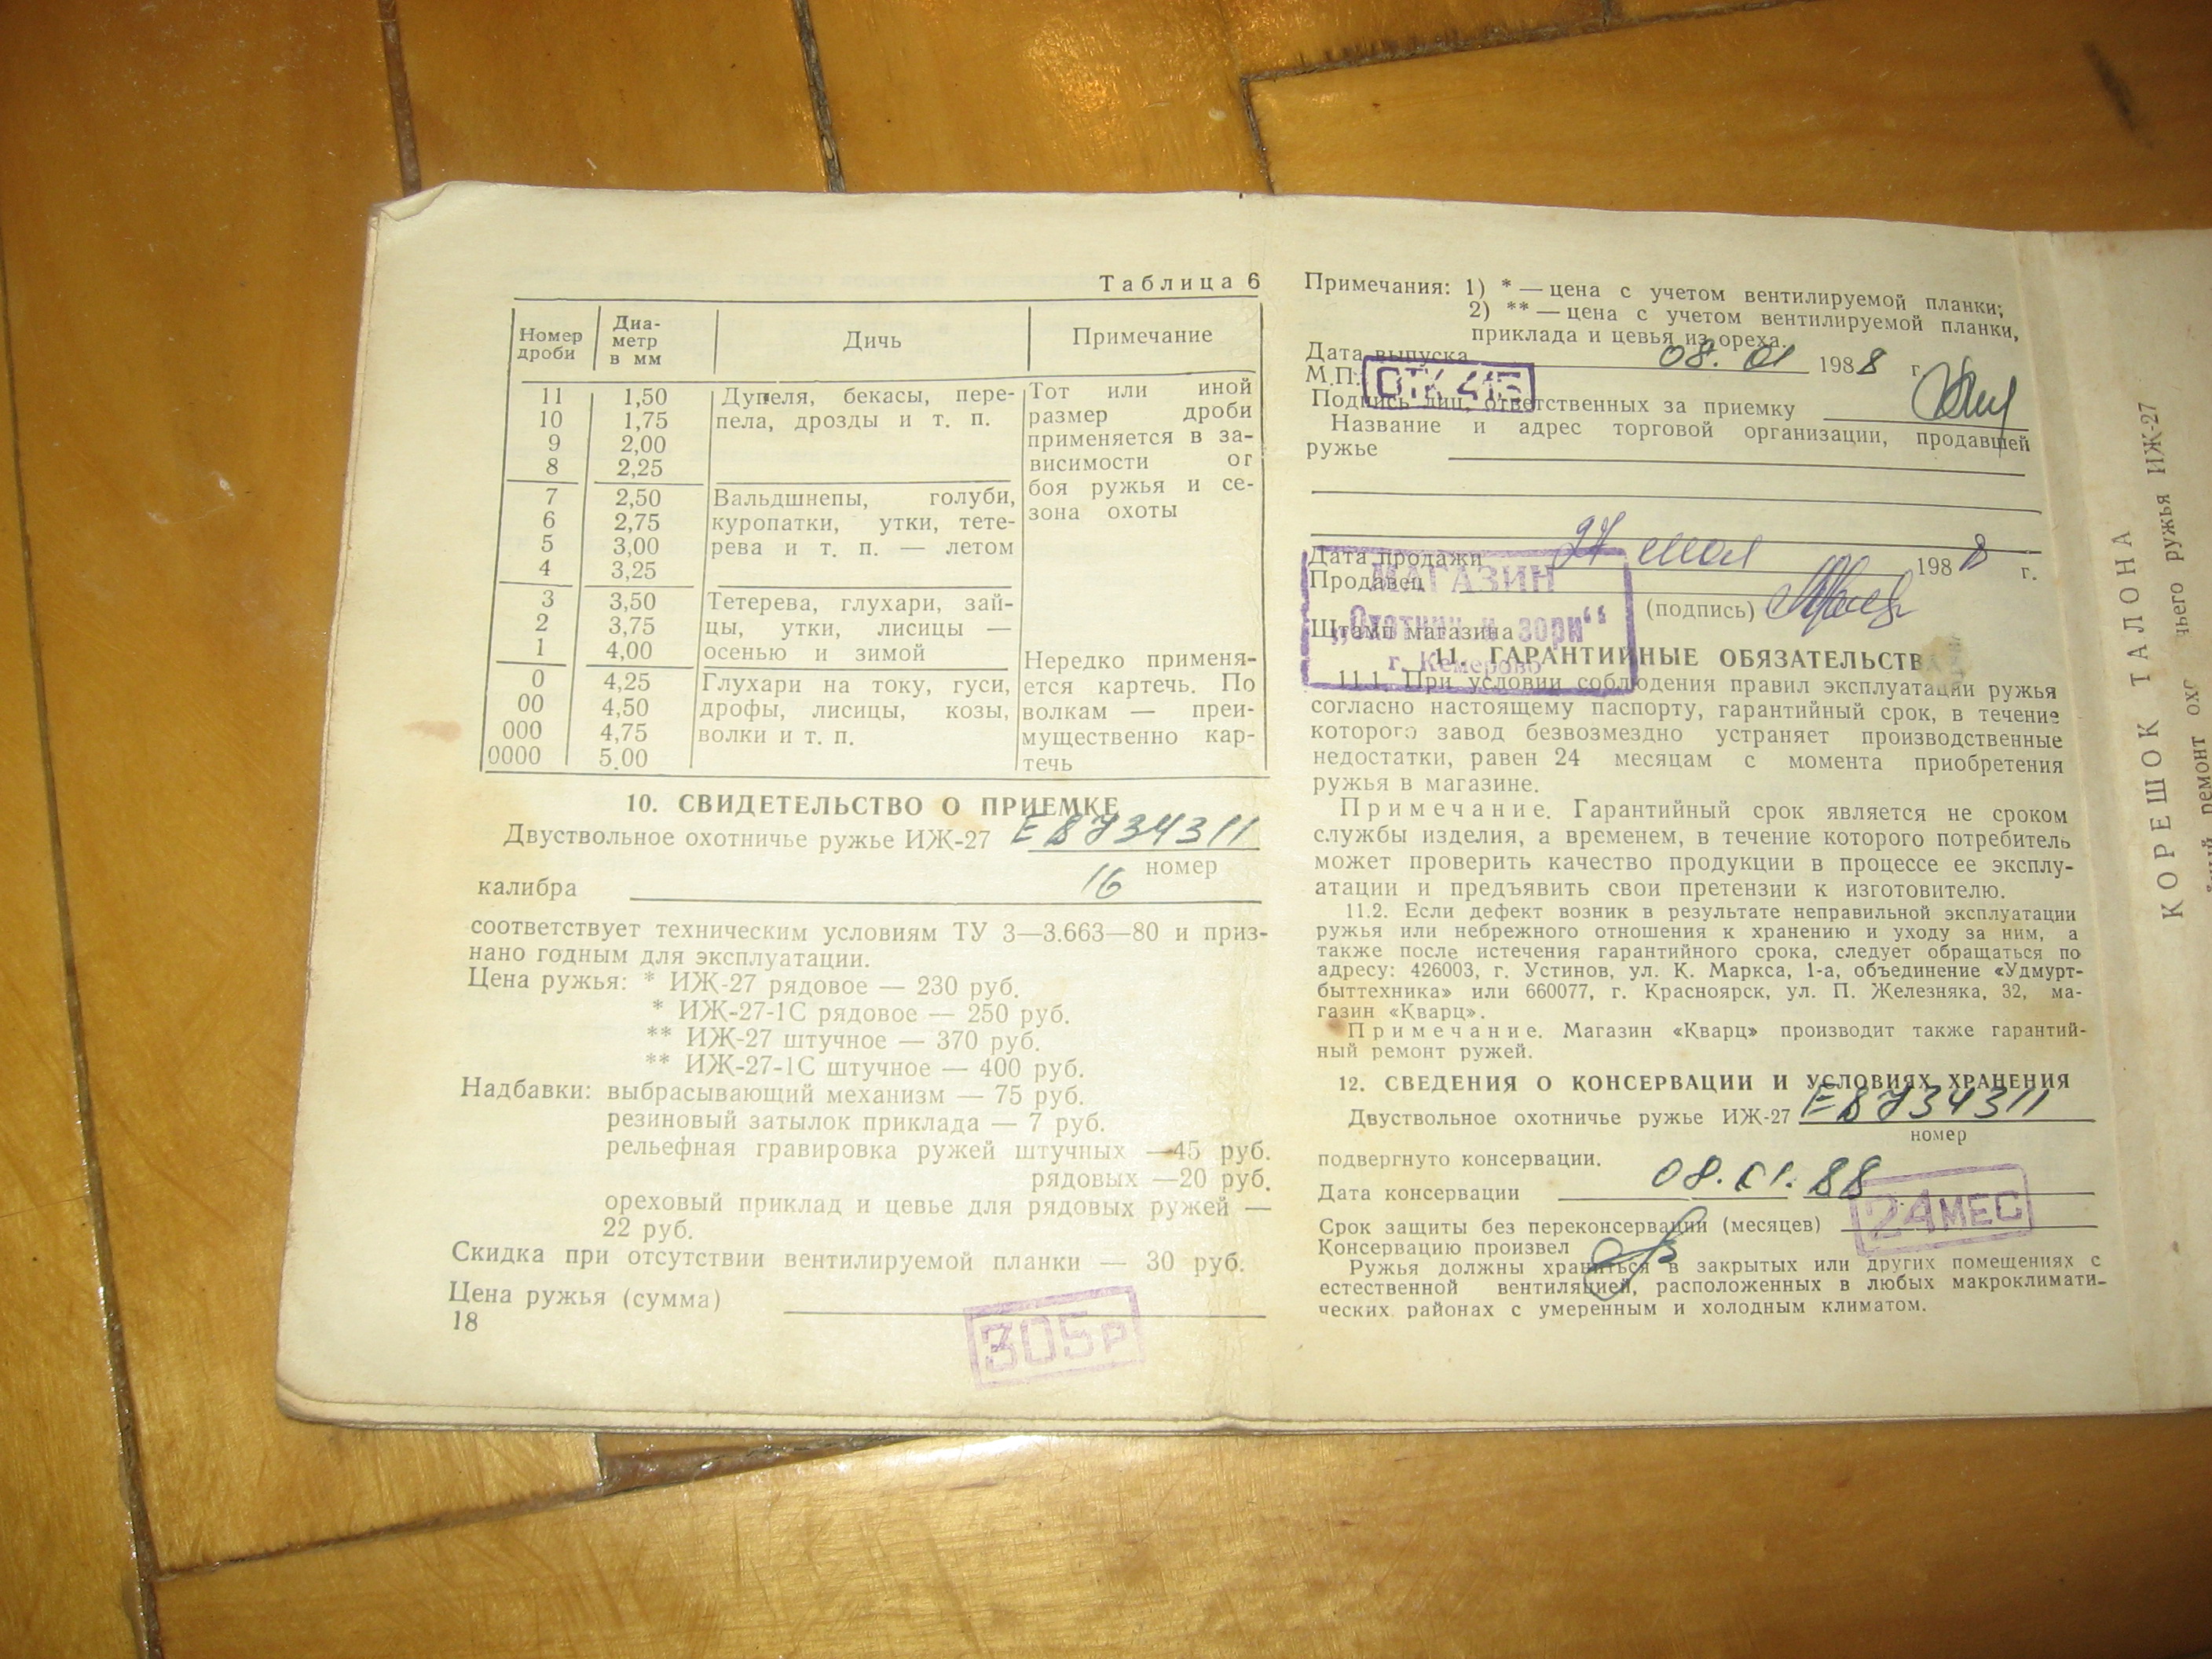 Таблица 6
Номер дроби | Диаметр в мм | Дичь | Примечание
11 1,50 Дупеля, бекасы, пере- Тот или иной
10 1,75 пела, дрозды и т. п. размер дроби
9 2,00 применяется в за-
8 2,25 висимости от
7 2,50 Вальдшнепы, голуби, боя ружья и се-
6 2,75 куропатки, утки, тете- зона охоты
5 3,00 рева и т. п. — летом
4 3,25
3 3,50 Тетерева, глухари, зай-
2 3,75 цы, утки, лисицы —
1 4,00 осенью и зимой Нередко применя-
0 4,25 Глухари на току, гуси, ется картечь. По
00 4,50 дрофы, лисицы, козы, волкам — преи-
000 4,75 волки и т. п. мущественно кар-
0000 5.00 течь
10. СВИДЕТЕЛЬСТВО О ПРИЕМКЕ
Двуствольное охотничье ружье ИЖ-27 Е8734311
номер
калибра 16
соответствует техническим условиям ТУ 3—3.663—80 и приз-
нано годным для эксплуатации.
Цена ружья: * ИЖ-27 рядовое — 230 руб.
* ИЖ-27-1С рядовое — 250 руб.
** ИЖ-27 штучное — 370 руб.
** ИЖ-27-1С штучное — 400 руб.
Надбавки: выбрасывающий механизм — 75 руб.
резиновый затылок приклада — 7 руб.
рельефная гравировка ружей штучных —45 руб.
рядовых —20 руб.
ореховый приклад и цевье для рядовых ружей —
22 руб.
Скидка при отсутствии вентилируемой планки — 30 руб.
Цена ружья (сумма)
305р
18
Примечания: 1) * — цена с учетом вентилируемой планки;
2) ** — цена с учетом вентилируемой планки,
приклада и цевья из ореха.
Дата выпуска 08. 01 1988 г.
М.П. ОТК
Подпись лиц, ответственных за приемку
Название и адрес торговой организации, продавшей
ружье
Дата продажи 27 мая 1988 г.
Продавец
(подпись)
Штамп магазина
МАГАЗИН
„Охотничьи зори“
г. Кемерово
11. ГАРАНТИЙНЫЕ ОБЯЗАТЕЛЬСТВА
11.1. При условии соблюдения правил эксплуатации ружья
согласно настоящему паспорту, гарантийный срок, в течение
которого завод безвозмездно устраняет производственные
недостатки, равен 24 месяцам с момента приобретения
ружья в магазине.
Примечание. Гарантийный срок является не сроком
службы изделия, а временем, в течение которого потребитель
может проверить качество продукции в процессе ее эксплу-
атации и предъявить свои претензии к изготовителю.
11.2. Если дефект возник в результате неправильной эксплуатации
ружья или небрежного отношения к хранению и уходу за ним, а
также после истечения гарантийного срока, следует обращаться по
адресу: 426003, г. Устинов, ул. К. Маркса, 1-а, объединение «Удмурт-
быттехника» или 660077, г. Красноярск, ул. П. Железняка, 32, ма-
газин «Кварц».
Примечание. Магазин «Кварц» производит также гарантий-
ный ремонт ружей.
12. СВЕДЕНИЯ О КОНСЕРВАЦИИ И УСЛОВИЯХ ХРАНЕНИЯ
Двуствольное охотничье ружье ИЖ-27 Е8734311
номер
подвергнуто консервации.
Дата консервации 08.01.88
Срок защиты без переконсервации (месяцев) 24 МЕС
Консервацию произвел
Ружья должны храниться в закрытых или других помещениях с
естественной вентиляцией, расположенных в любых макроклимати-
ческих районах с умеренным и холодным климатом.
КОРЕШОК ТАЛОНА
ремонт ружья ИЖ-27